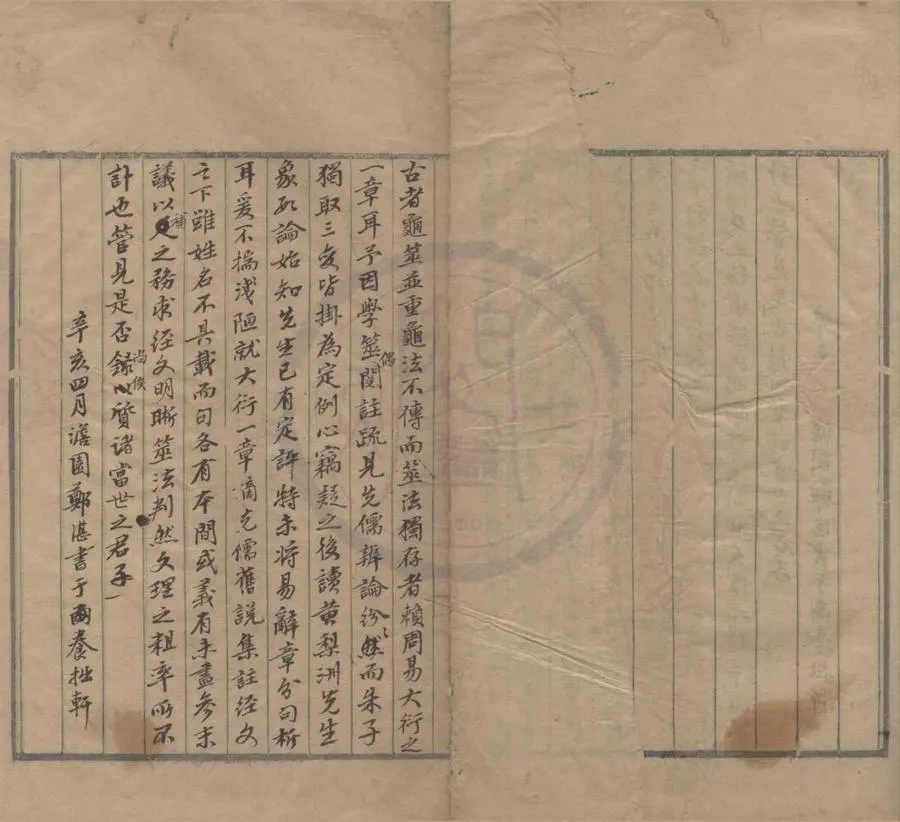 古者龜筮並重龜法不傳而筮法獨存者賴周易大衍之
一章耳予因學筮偶閱註疏見先儒辨論紛然而朱子
獨取三變皆掛為定例心竊疑之後讀黄梨洲先生
象數論始知先生已有定評特未將易辭章分句析
耳爰不揣淺陋就大衍一章滴先儒舊說集註經文
之下雖姓名不具載而句各有本間或義有未盡参末
議以補之務求經文明晰筮法判然文理之粗率所不
計也管見是否尚俟錄以質诸當世之君子
辛亥四月澹園鄭湛書于養拙軒